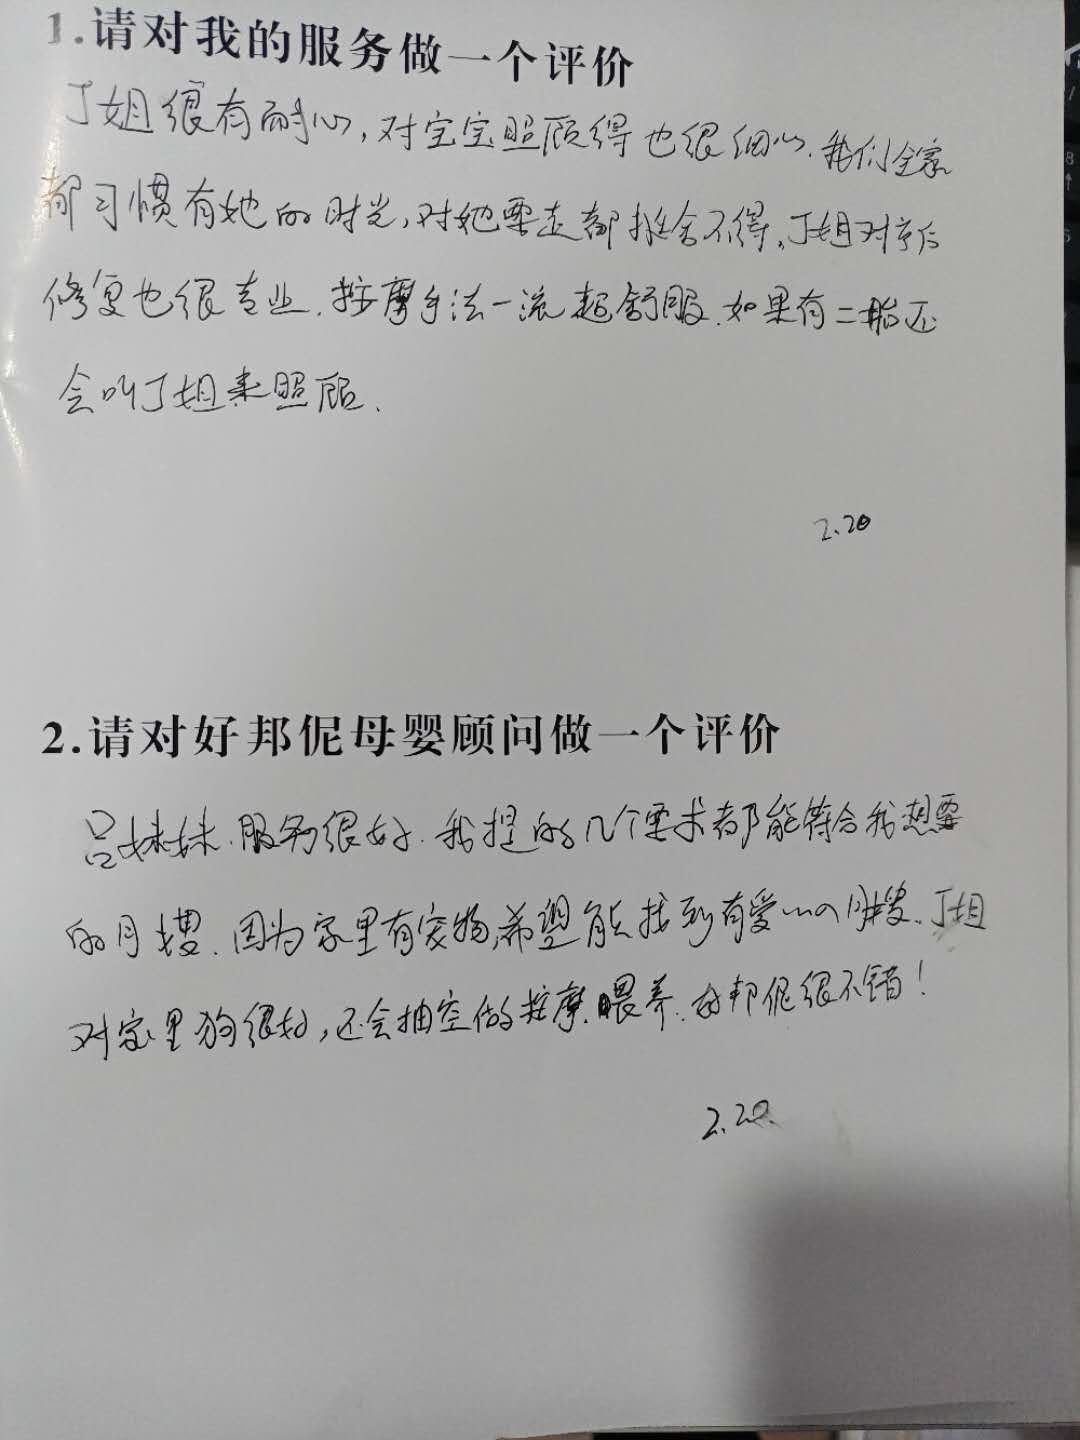 1.请对我的服务做一个评价
丁姐很有耐心,对宝宝照顾得也很细心.我们全家
都习惯有她的时光,对她要走都挺舍不得,丁姐对产后
修复也很专业.按摩手法一流超舒服.如果有二胎还
会叫丁姐来照顾.
2.20
2.请对好邦伲母婴顾问做一个评价
吕妹妹.服务很好.我提的几个要求都能符合我想要
的月嫂.因为家里有宠物,希望能找到有爱心的月嫂.丁姐
对家里狗很好,还会抽空做按摩.喂养.好邦伲很不错!
2.20.